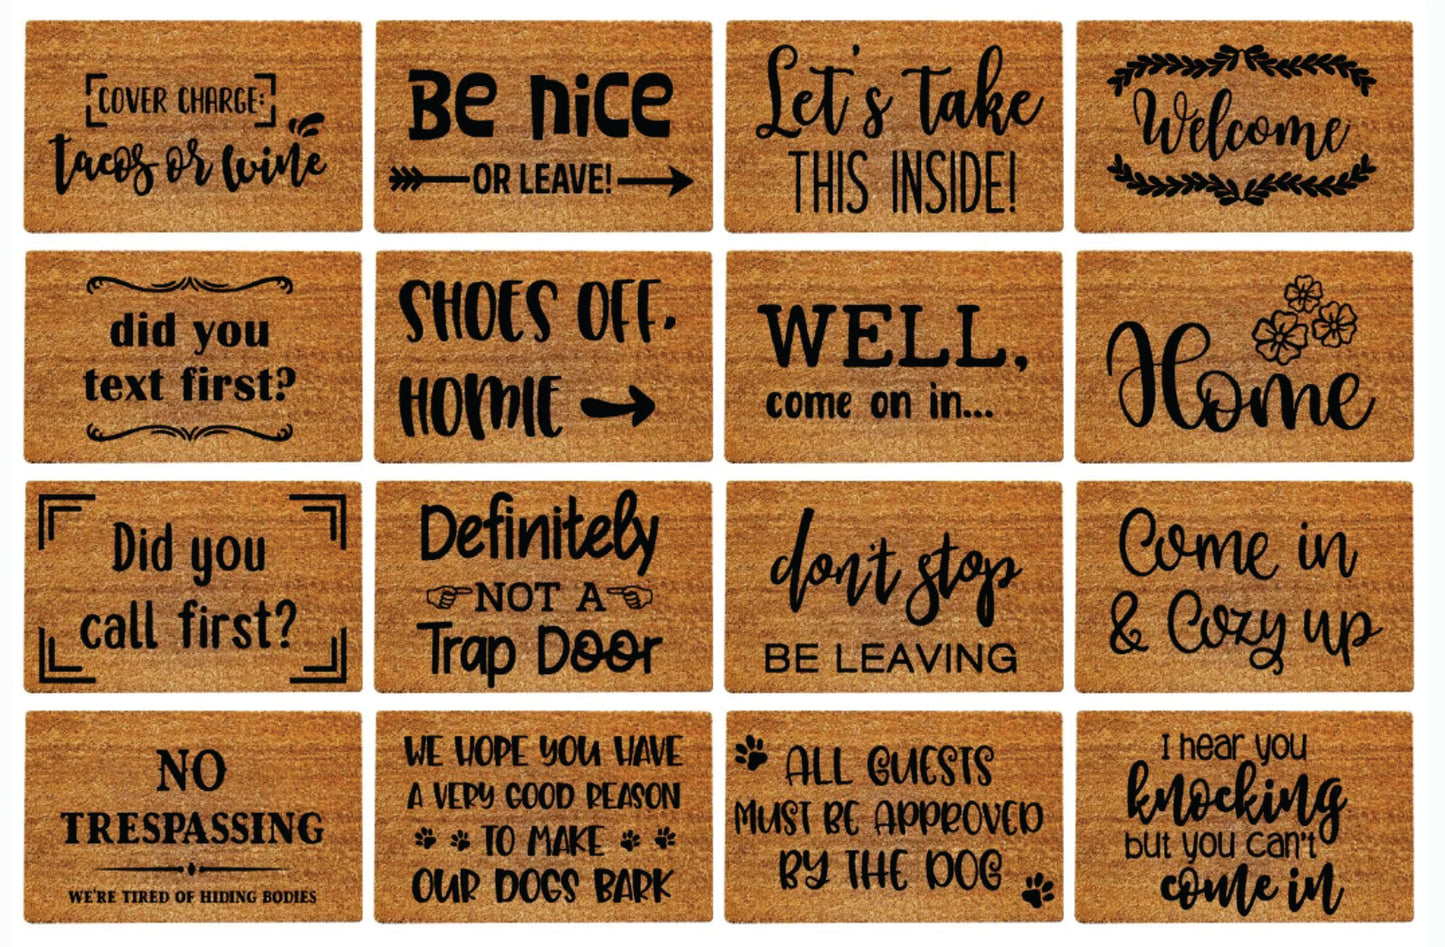 COVER CHARGE:
tacos or wine
Be nice
OR LEAVE!
Let's take
THIS INSIDE!
Welcome
did you
text first?
SHOES OFF,
HOMIE
WELL,
come on in...
Home
Did you
call first?
Definitely
NOT A
Trap Door
don't stop
BE LEAVING
Come in
& Cozy up
NO
TRESPASSING
WE'RE TIRED OF HIDING BODIES
WE HOPE YOU HAVE
A VERY GOOD REASON
TO MAKE
OUR DOGS BARK
ALL GUESTS
MUST BE APPROVED
BY THE DOG
I hear you
knocking
but you can't
come in